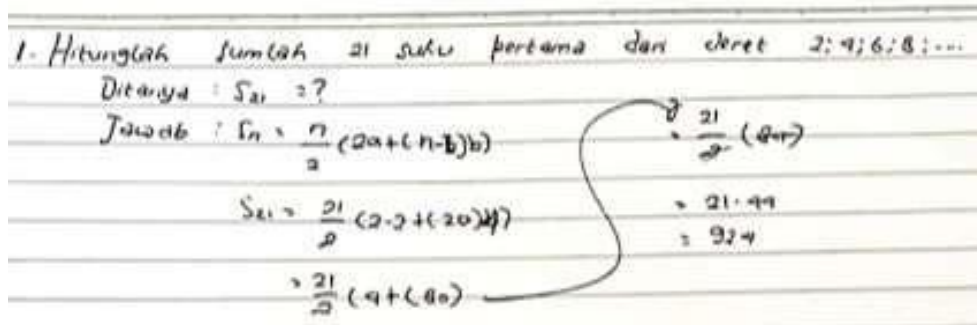 1. Hitunglah jumlah 21 suku pertama dari deret 2; 4; 6; 8; ...
Ditanya : S21 = ?
Jawab : Sn = n/2 (2a + (n-1)b)
S21 = 21/2 (2.2 + (20)4)
= 21/2 (4 + (80)
= 21/2 (84)
= 21.44
= 924